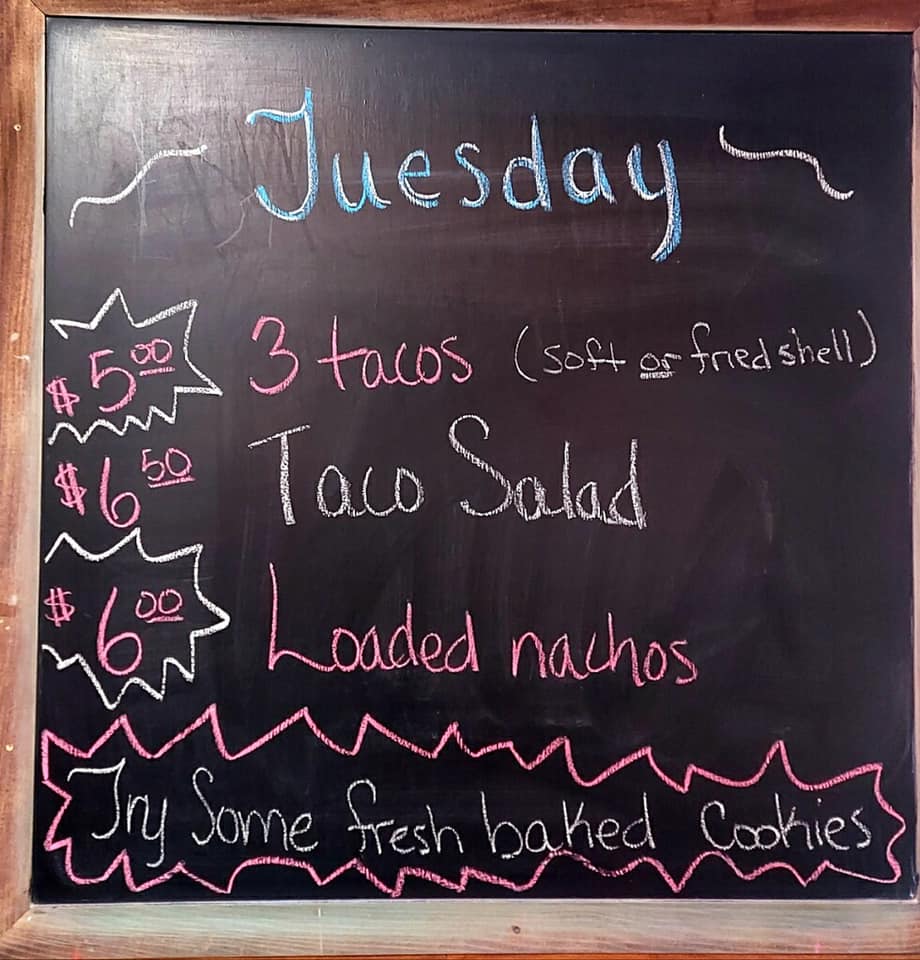 Tuesday
$5.00 3 tacos (soft or fried shell)
$6.50 Taco Salad
$6.00 Loaded nachos
Try Some fresh baked Cookies